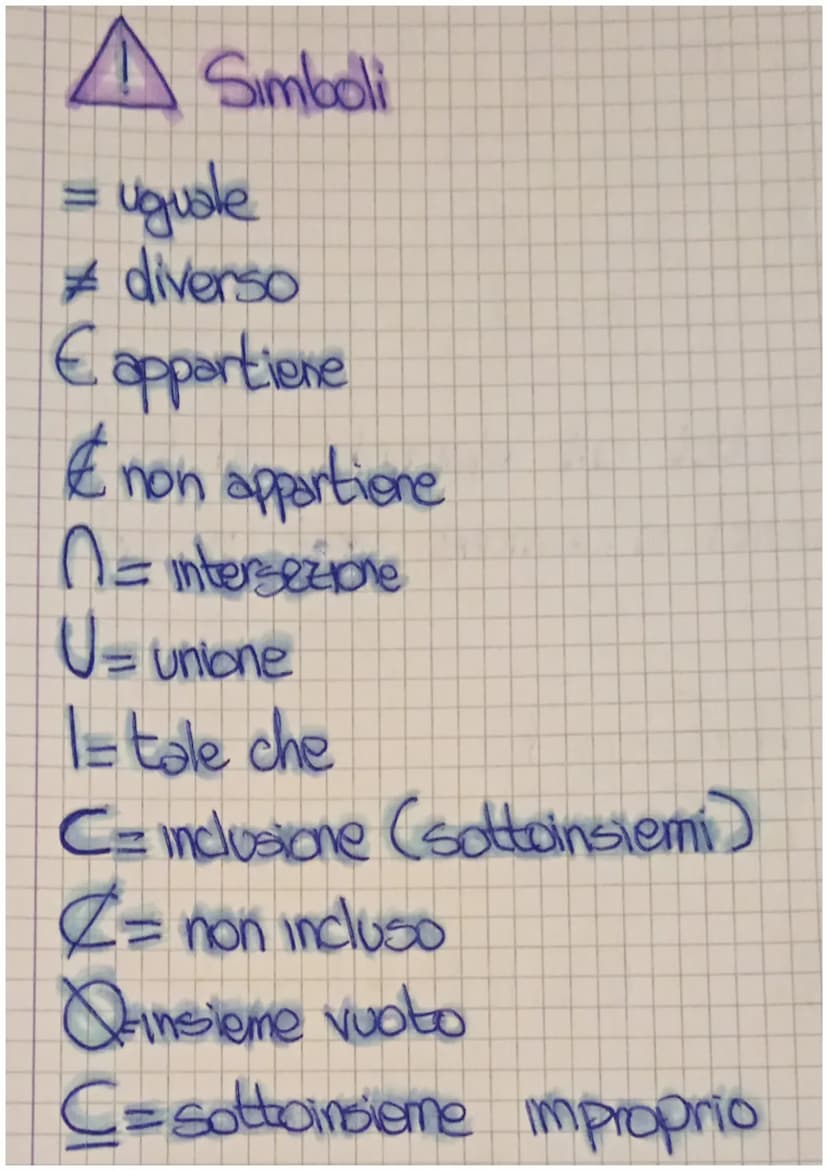 ! Simboli
= uguale
≠ diverso
∈ appartiene
∉ non appartiene
∩ = intersezione
U = unione
| = tale che
⊂ = inclusione (sottoinsiemi)
⊄ = non incluso
∅ = insieme vuoto
⊆ = sottoinsieme improprio